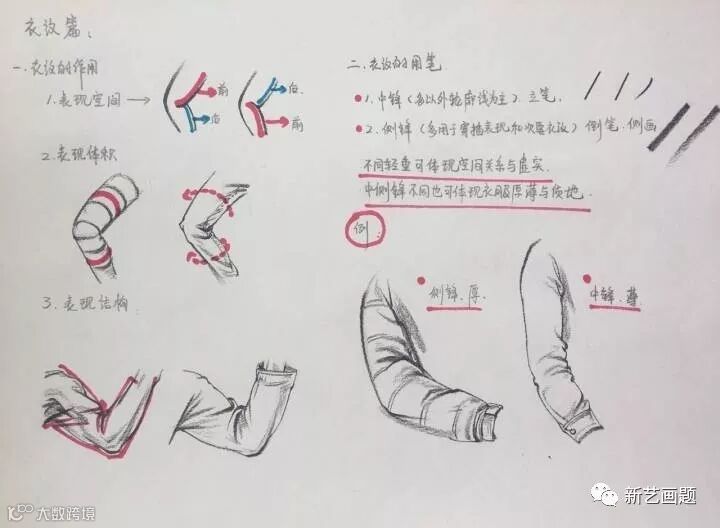 衣纹篇:
一.衣纹的作用
1.表现空间
前
后
后
前
2.表现体积
3.表现结构
二.衣纹的用笔
1.中锋(多以外轮廓线为主)立笔.
2.侧锋(多用于穿插表现和次要衣纹)侧笔.侧画
不同轻重可体现空间关系与虚实.
中侧锋不同也可体现衣服厚薄与质地.
例
侧锋.厚.
中锋.薄.
新艺画题
大数跨境